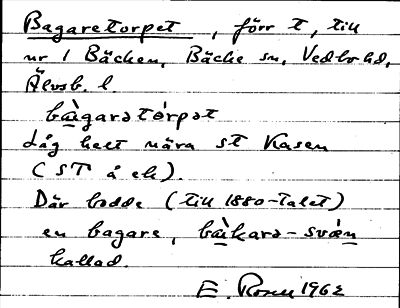 Bagaretorpet, förr t, till
nr 1 Bäcken, Bäcke sn, Vedbo hd,
Älvsb. l.
bàgarətórpət
Låg helt nära st Kasen
(ST å ek).
Där bodde (till 1880-talet)
en bagare, bàkarə-svæ̀n
kallad.
E. Rosell 1962